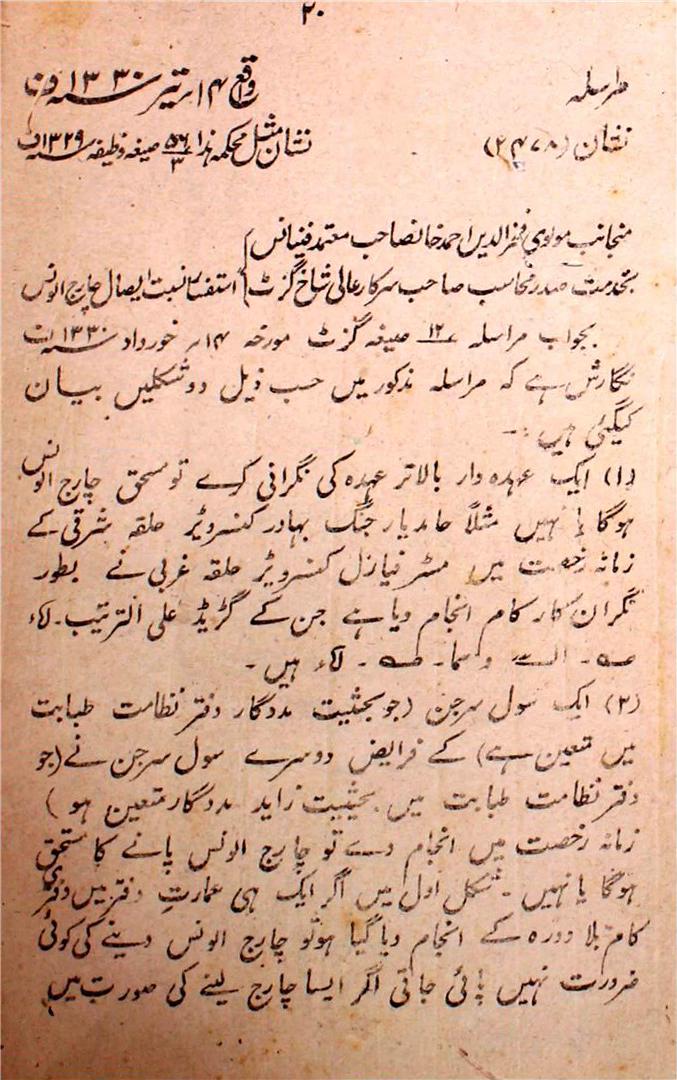 ۲۰
مراسلہ واقع ۱۴ تیر ۱۳۳۰ ف
نشان (۲۴۷۸) نشان مثل محکمہ ہذا ۵۶/۳ صیغہ وظیفہ ۱۳۲۹ ف
منجانب مولوی فخر الدین احمد خانصاحب معتمد فینانس
بخدمت صدر محاسب صاحب سرکار عالی شاخ گزٹ استفسار نسبت ایصال چارج الونس
بجواب مراسلہ ۱۲ صیغہ گزٹ مورخہ ۱۴ خورداد ۱۳۳۰ ف
نگارش ہے کہ مراسلہ مذکور میں حسب ذیل دو شکلیں بیان
کیگئی ہیں :-
(۱) ایک عہدہ دار بالاتر عہدہ کی نگرانی کرے تو مستحق چارج الونس
ہوگا یا نہیں مثلاً حامد یار جنگ بہادر کنسرویٹر حلقہ شرقی کے
زمانہ رخصت میں مسٹر نیازل کنسرویٹر حلقہ غربی نے بطور
نگران کار کام انجام دیا ہے جن کے گریڈ علی الترتیب
ہیں ۔
(۲) ایک سول سرجن (جو بحیثیت مددگار دفتر نظامت طبابت
میں متعین ہے) کے فرایض دوسرے سول سرجن نے (جو
دفتر نظامت طبابت میں بحیثیت زاید مددگار متعین ہو)
زمانہ رخصت میں انجام دے تو چارج الونس پانے کا مستحق
ہوگا یا نہیں ۔ شکل اول میں اگر ایک ہی عمارتِ دفتر میں دفتری
کام بلا دورہ کے انجام دیا گیا ہو تو چارج الونس دینے کی کوئی
ضرورت نہیں پائی جاتی اگر ایسا چارج لینے کی صورت میں